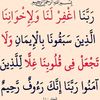 رَبَّنَا اغْفِرْ لَنَا وَلِإِخْوَانِنَا
الَّذِينَ سَبَقُونَا بِالْإِيمَانِ وَلَا
تَجْعَلْ فِي قُلُوبِنَا غِلًّا لِلَّذِينَ
آمَنُوا رَبَّنَا إِنَّكَ رَءُوفٌ رَحِيمٌ